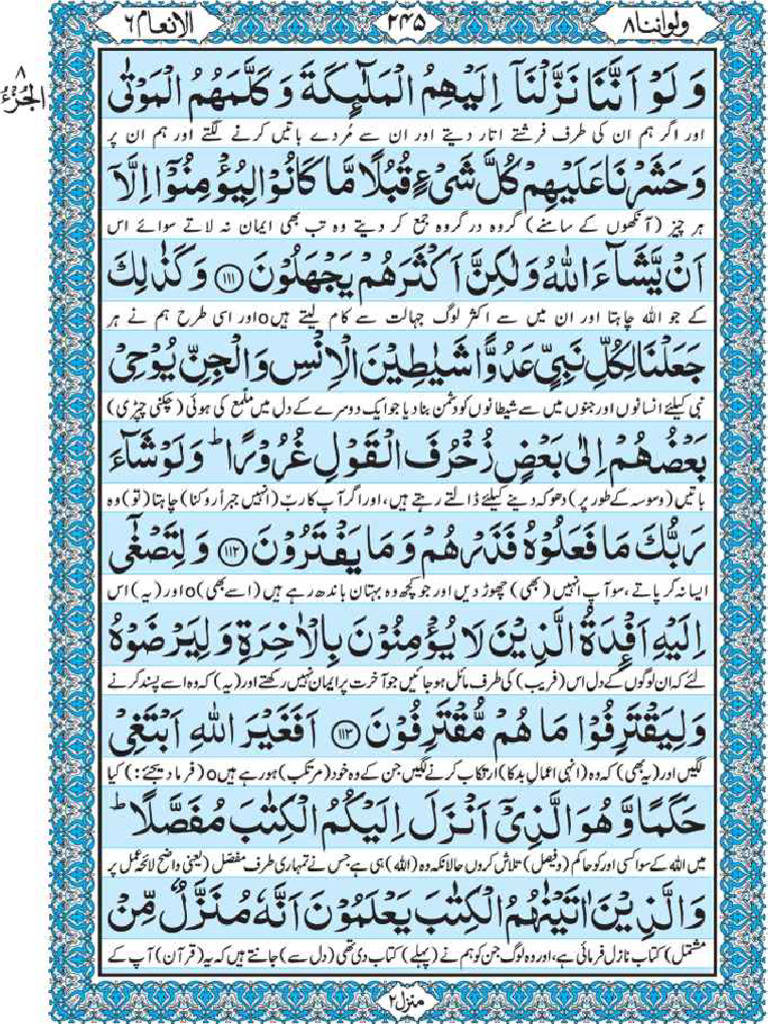 ولواننا ۸
۲۴۵
الانعام ۶
الجزء ۸
وَ لَوْ اَنَّنَا نَزَّلْنَاۤ اِلَيْهِمُ الْمَلٰٓىِٕكَةَ وَ كَلَّمَهُمُ الْمَوْتٰى
اور اگر ہم ان کی طرف فرشتے اتار دیتے اور ان سے مُردے باتیں کرنے لگتے اور ہم ان پر
وَ حَشَرْنَا عَلَيْهِمْ كُلَّ شَیْءٍ قُبُلًا مَّا كَانُوْا لِيُؤْمِنُوْۤا اِلَّاۤ
ہر چیز (آنکھوں کے سامنے) گروہ در گروہ جمع کر دیتے وہ تب بھی ایمان نہ لاتے سوائے اس
اَنْ يَّشَآءَ اللّٰهُ وَ لٰكِنَّ اَكْثَرَهُمْ يَجْهَلُوْنَ ﴿۱۱۱﴾ وَ كَذٰلِكَ
کے جو اللہ چاہتا اور ان میں سے اکثر لوگ جہالت سے کام لیتے ہیںo اور اسی طرح ہم نے ہر
جَعَلْنَا لِكُلِّ نَبِیٍّ عَدُوًّا شَيٰطِيْنَ الْاِنْسِ وَ الْجِنِّ يُوْحِیْ
نبی کیلئے انسانوں اور جنوں میں سے شیطانوں کو دشمن بنا دیا جو ایک دوسرے کے دل میں ملمّع کی ہوئی (چکنی چپڑی)
بَعْضُهُمْ اِلٰى بَعْضٍ زُخْرُفَ الْقَوْلِ غُرُوْرًا ؕ وَ لَوْ شَآءَ
باتیں (وسوسہ کے طور پر) دھوکہ دینے کیلئے ڈالتے رہتے ہیں، اور اگر آپ کا ربّ (انہیں جبراً روکنا) چاہتا (تو) وہ
رَبُّكَ مَا فَعَلُوْهُ فَذَرْهُمْ وَ مَا يَفْتَرُوْنَ ﴿۱۱۲﴾ وَ لِتَصْغٰۤى
ایسا نہ کر پاتے، سو آپ انہیں (بھی) چھوڑ دیں اور جو کچھ وہ بہتان باندھ رہے ہیں (اسے بھی)o اور (یہ) اس
اِلَيْهِ اَفْـِٕدَةُ الَّذِيْنَ لَا يُؤْمِنُوْنَ بِالْاٰخِرَةِ وَ لِيَرْضَوْهُ
لئے کہ ان لوگوں کے دل اس (فریب) کی طرف مائل ہو جائیں جو آخرت پر ایمان نہیں رکھتے اور (یہ) کہ وہ اسے پسند کرنے
وَ لِيَقْتَرِفُوْا مَا هُمْ مُّقْتَرِفُوْنَ ﴿۱۱۳﴾ اَفَغَيْرَ اللّٰهِ اَبْتَغِیْ
لگیں اور (یہ بھی) کہ وہ (انہی اعمالِ بد کا) ارتکاب کرنے لگیں جن کے وہ خود (مرتکب) ہو رہے ہیںo (فرما دیجئے:) کیا
حَكَمًا وَّ هُوَ الَّذِیْۤ اَنْزَلَ اِلَيْكُمُ الْكِتٰبَ مُفَصَّلًا ؕ
میں اللہ کے سوا کسی اور کو حاکم (و فیصل) تلاش کروں حالانکہ وہ (اللہ) ہی ہے جس نے تمہاری طرف مفصّل (یعنی واضح لائحہ عمل پر
وَ الَّذِيْنَ اٰتَيْنٰهُمُ الْكِتٰبَ يَعْلَمُوْنَ اَنَّهٗ مُنَزَّلٌ مِّنْ
مشتمل) کتاب نازل فرمائی ہے، اور وہ لوگ جن کو ہم نے (پہلے) کتاب دی تھی (دل سے) جانتے ہیں کہ یہ (قرآن) آپ کے
منزل ۲